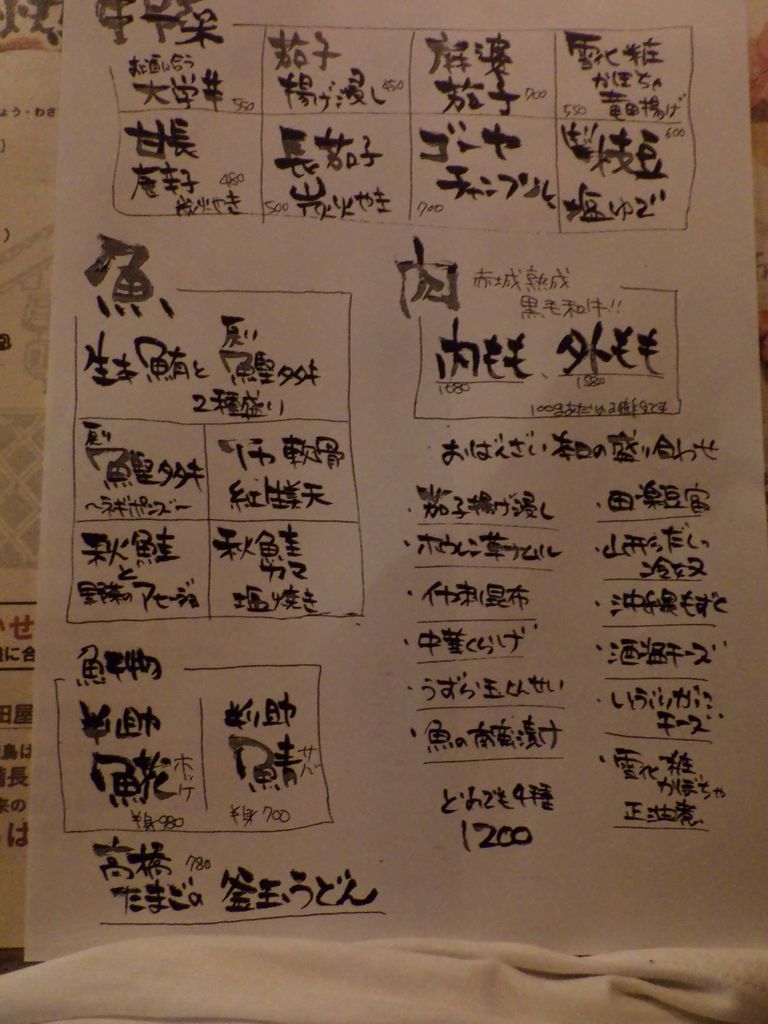 野菜
お酒に合う
大学芋 550
茄子
揚げ浸し 450
麻婆
茄子 700
雪化粧
かぼちゃ
550 竜田揚げ
甘長
唐辛子 480
炭火やき
長茄子
500 炭火やき
ゴーヤ
チャンプルー
700
枝豆 600
塩ゆで
魚
生本鮪と 戻り鰹タタキ
2種盛り
戻り
鰹タタキ
〜ネギポンズ〜
軟骨
紅生姜天
秋鮭
と
野菜のアヒージョ
秋鮭
カマ
塩焼き
肉 赤城熟成
黒毛和牛!!
内もも、外もも
1680 1580
100gあたりのお値段です
おばんざい 本日の盛り合わせ
・茄子揚げ浸し
・ホウレン草ナムル
・什刺昆布
・中華くらげ
・うずら玉くんせい
・魚の南蛮漬け
・田楽豆富
・山形のだし
冷奴
・沖縄もずく
・酒盗チーズ
・いぶりがっこ
チーズ
・雪化粧
かぼちゃ
正油煮
どれでも4種
1200
魚干物
半助
𩸽 ホッケ
半身 980
半助
鯖 サバ
半身 700
高橋 780
たまごの 釜玉うどん